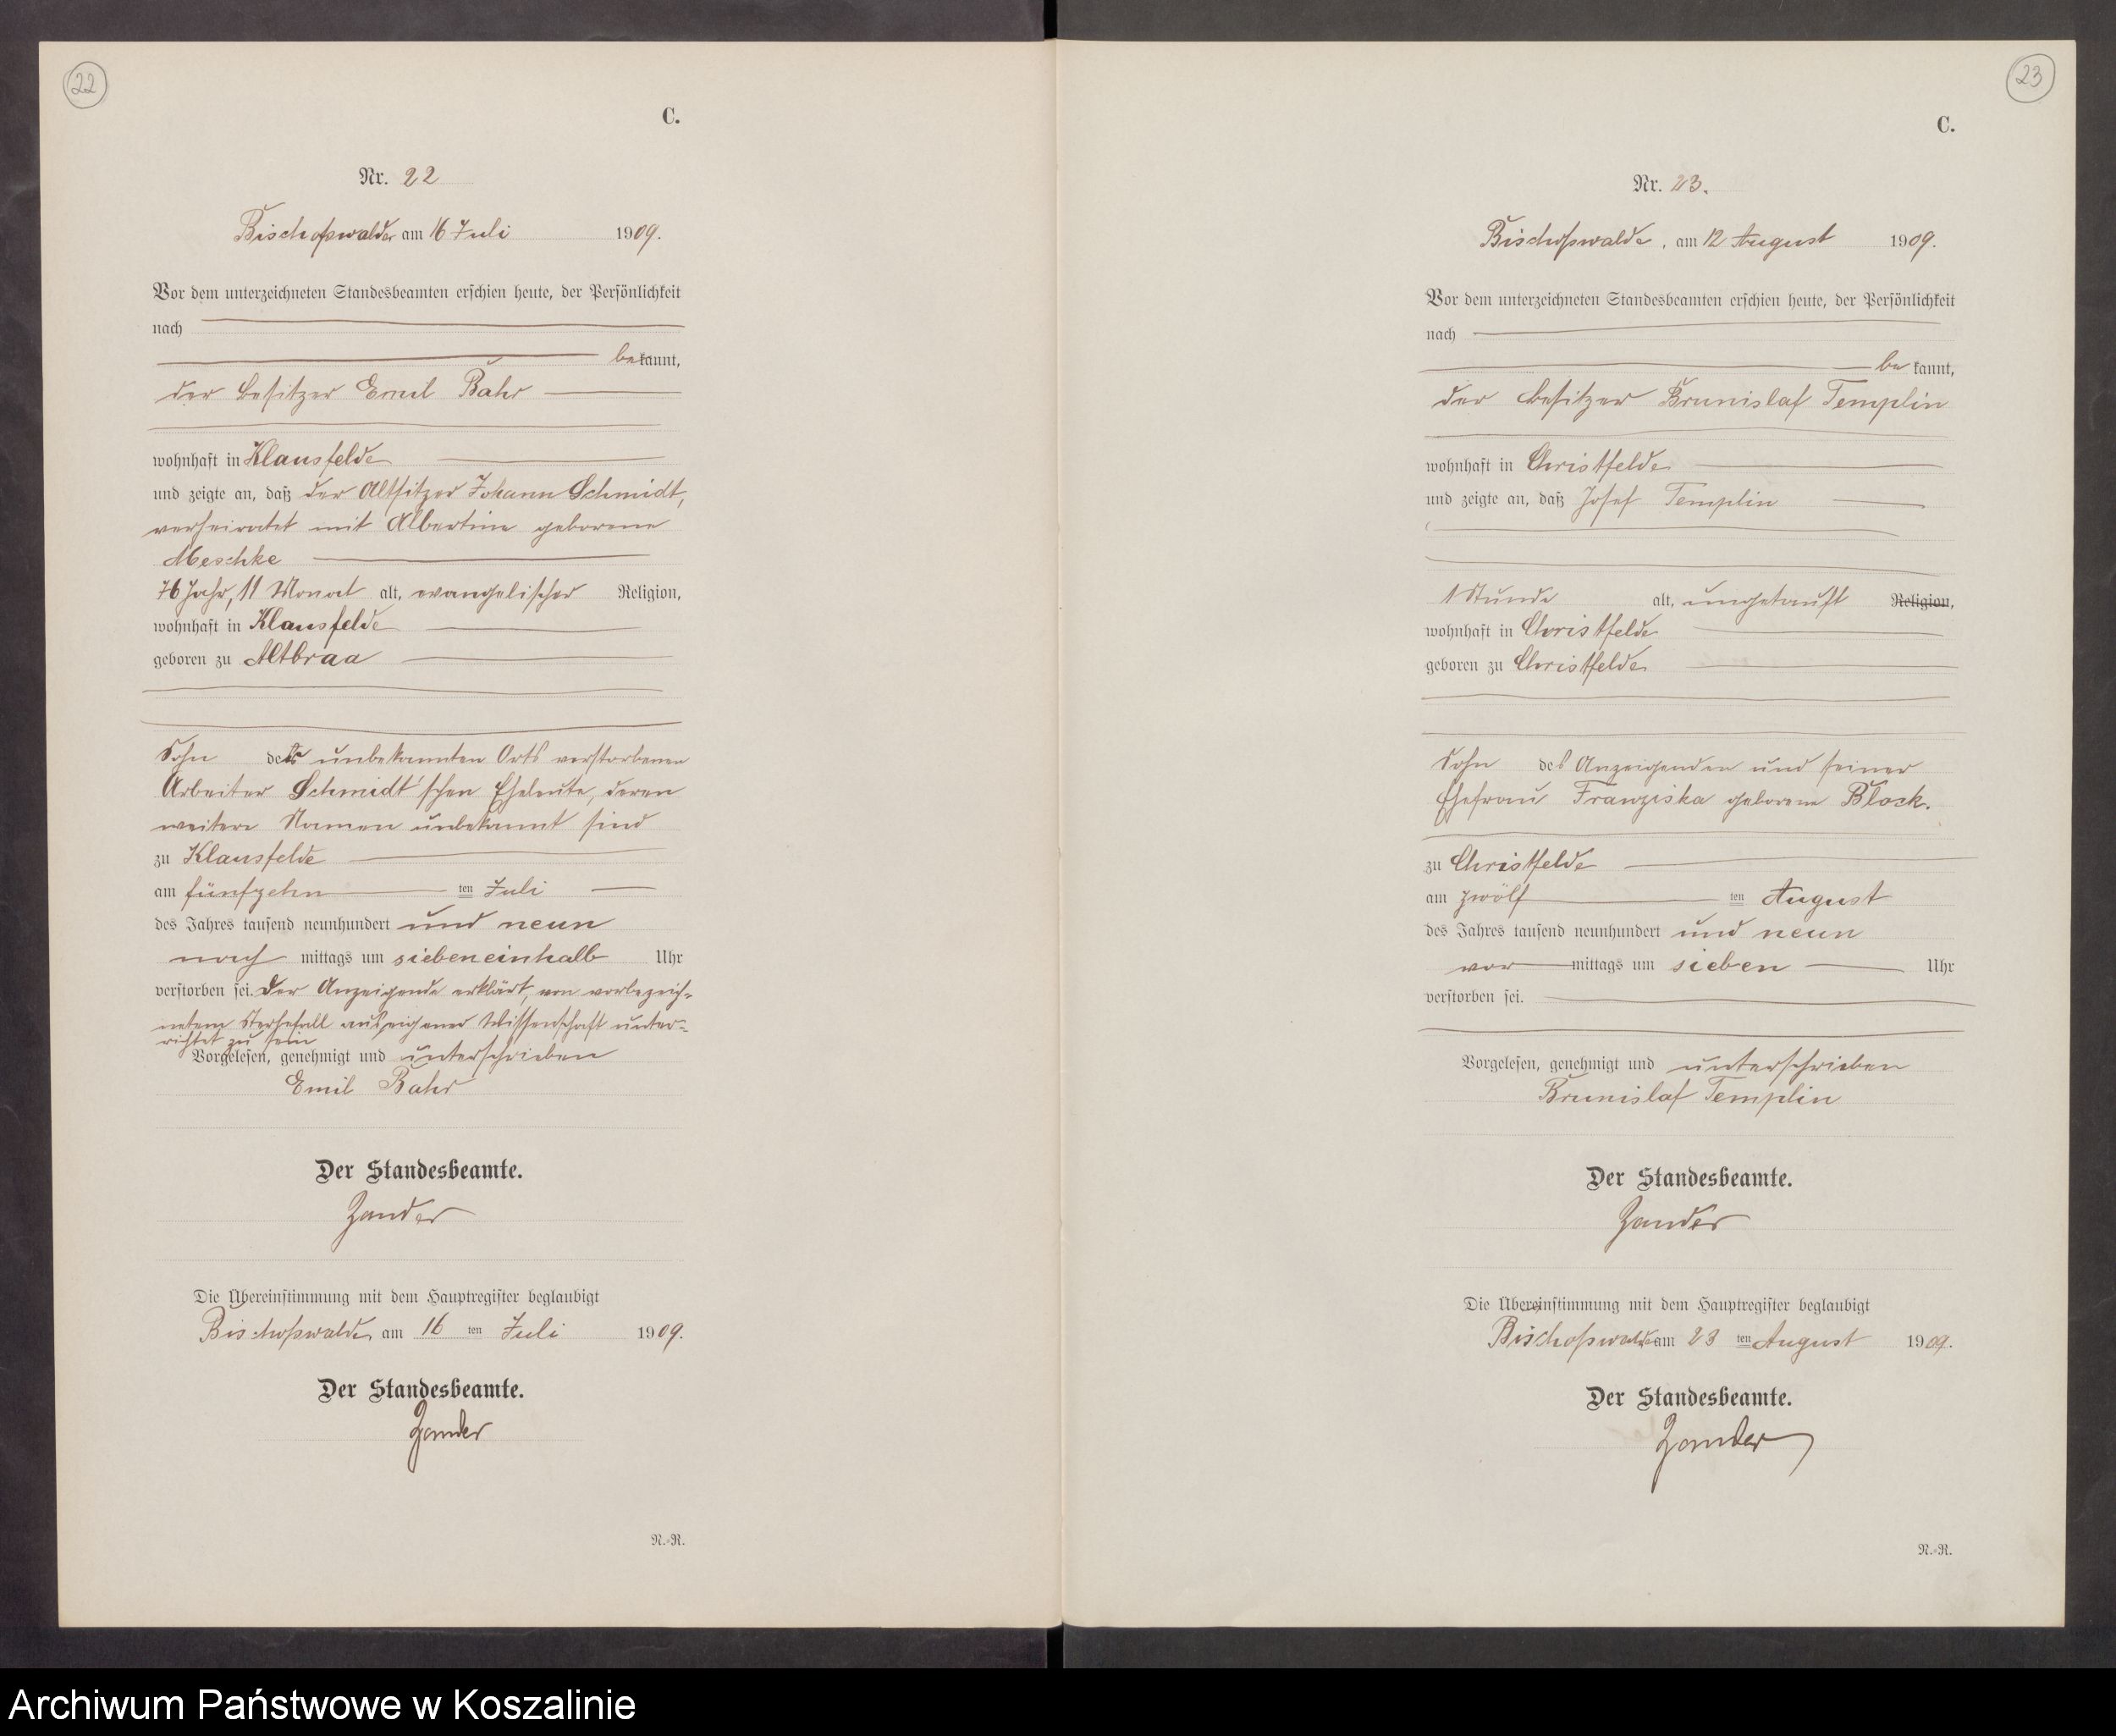 22
C.
Nr. 22
Bischofswalde, am 16 Juli 1909.
Vor dem unterzeichneten Standesbeamten erschien heute, der Persönlichkeit
nach
bekannt,
der Besitzer Emil Bahr
wohnhaft in Klausfelde
und zeigte an, daß der Altsitzer Johann Schmidt,
verheiratet mit Albertine geborene
Meschke
76 Jahr, 11 Monat alt, evangelischer Religion,
wohnhaft in Klausfelde
geboren zu Altbraa
Sohn der unbekannten Orts verstorbenen
Arbeiter Schmidt'schen Eheleute, deren
weitere Namen unbekannt sind
zu Klausfelde
am fünfzehn ten Juli
des Jahres tausend neunhundert und neun
nach mittags um siebeneinhalb Uhr
verstorben sei. Der Anzeigende erklärt, von vorbezeich-
netem Sterbefall aus eigener Wissenschaft unter-
richtet zu sein
Vorgelesen, genehmigt und unterschrieben
Emil Bahr
Der Standesbeamte.
Zander
Die Übereinstimmung mit dem Hauptregister beglaubigt
Bischofswalde, am 16 ten Juli 1909.
Der Standesbeamte.
Zander
N.-R.
23
C.
Nr. 23.
Bischofswalde, am 12 August 1909.
Vor dem unterzeichneten Standesbeamten erschien heute, der Persönlichkeit
nach
be kannt,
der Besitzer Brunislaf Templin
wohnhaft in Christfelde
und zeigte an, daß Josef Templin
1 Stunde alt, ungetauft Religion,
wohnhaft in Christfelde
geboren zu Christfelde
Sohn des Anzeigenden und seiner
Ehefrau Franziska geborene Block.
zu Christfelde
am zwölf ten August
des Jahres tausend neunhundert und neun
vor mittags um sieben Uhr
verstorben sei.
Vorgelesen, genehmigt und unterschrieben
Brunislaf Templin
Der Standesbeamte.
Zander
Die Übereinstimmung mit dem Hauptregister beglaubigt
Bischofswalde am 23 ten August 1909.
Der Standesbeamte.
Zander
N.-R.
Archiwum Państwowe w Koszalinie